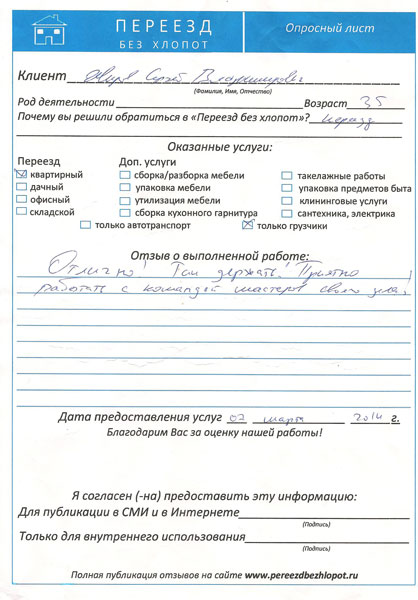 ПЕРЕЕЗД
БЕЗ ХЛОПОТ
Опросный лист
Клиент Сергей Владимирович
(Фамилия, Имя, Отчество)
Род деятельности Возраст 35
Почему вы решили обратиться в «Переезд без хлопот»? переезд
Оказанные услуги:
Переезд Доп. услуги
квартирный сборка/разборка мебели такелажные работы
дачный упаковка мебели упаковка предметов быта
офисный утилизация мебели клининговые услуги
складской сборка кухонного гарнитура сантехника, электрика
только автотранспорт только грузчики
Отзыв о выполненной работе:
Отлично! Так держать! Приятно
работать с командой мастеров своего дела!
Дата предоставления услуг 02 марта 2014 г.
Благодарим Вас за оценку нашей работы!
Я согласен (-на) предоставить эту информацию:
Для публикации в СМИ и в Интернете
(Подпись)
Только для внутреннего использования
(Подпись)
Полная публикация отзывов на сайте www.pereezdbezhlopot.ru